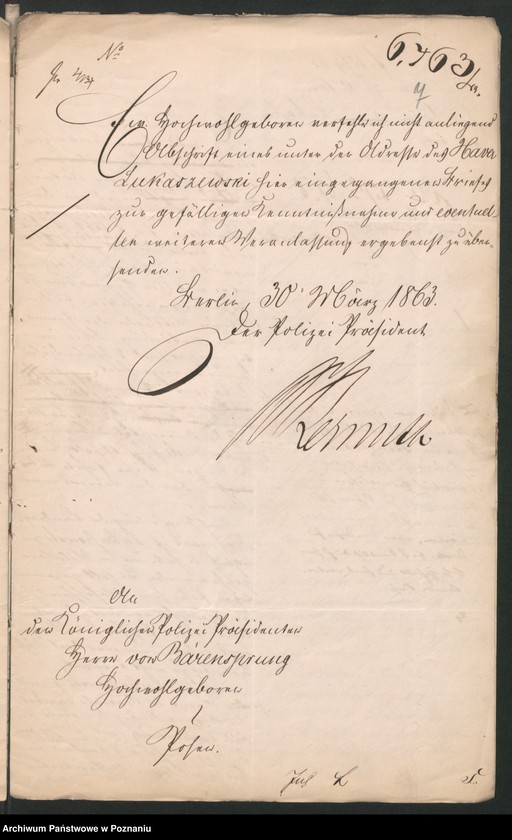 6,763
No
7
Ew. Hochwohlgeboren verfehle ich nicht anliegend
Abschrift eines unter der Adresse des Xaver
Lukaszewski hier eingegangenen Briefes
zur gefälligen Kenntnißnahme und eventuel-
len weiteren Veranlassung ergebenst zu über-
senden.
Berlin, 30 März 1863.
Der Polizei Präsident
An
den Königlichen Polizei Präsidenten
Herrn von Bärensprung
Hochwohlgeboren
Posen.
Archiwum Państwowe w Poznaniu